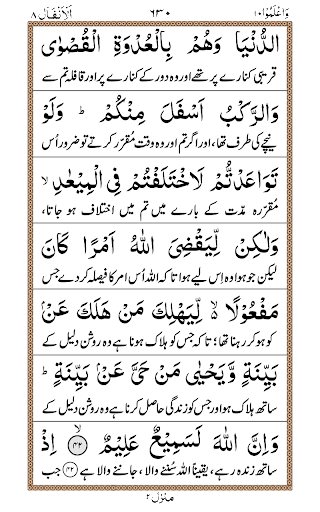 وَاعْلَمُوْا ١٠ ٦٣٠ اَلْاَنْفَال ٨
الدُّنْيَا وَهُمْ بِالْعُدْوَةِ الْقُصْوٰى
قریبی کنارے پر تھے اور وہ دور کے کنارے پر اور قافلہ تم سے
وَالرَّكْبُ اَسْفَلَ مِنْكُمْ ؕ وَلَوْ
نیچے کی طرف تھا، اور اگر تم اور وہ وقت مقرّر کرتے تو ضرور اُس
تَوَاعَدْتُّمْ لَاخْتَلَفْتُمْ فِى الْمِيْعٰدِ ۙ
مقررہ مدّت کے بارے میں تم میں اختلاف ہو جاتا،
وَلٰكِنْ لِّيَقْضِىَ اللّٰهُ اَمْرًا كَانَ
لیکن جو ہوا وہ اِس لیے ہوا تا کہ اللہ اُس امر کا فیصلہ کر دے جس
مَفْعُوْلًا ۙ لِّيَهْلِكَ مَنْ هَلَكَ عَنْۢ
کو ہو کر رہنا تھا؛ تا کہ جس کو ہلاک ہونا ہے وہ روشن دلیل کے
بَيِّنَةٍ وَّيَحْيٰى مَنْ حَىَّ عَنْۢ بَيِّنَةٍ ؕ
ساتھ ہلاک ہو اور جس کو زندگی حاصل کرنا ہے وہ روشن دلیل کے
وَاِنَّ اللّٰهَ لَسَمِيْعٌ عَلِيْمٌ ۙ ﴿٤٢﴾ اِذْ
ساتھ زندہ رہے، یقیناً اللہ سُننے والا، جاننے والا ہے (٤٢) جب
منزل ٢